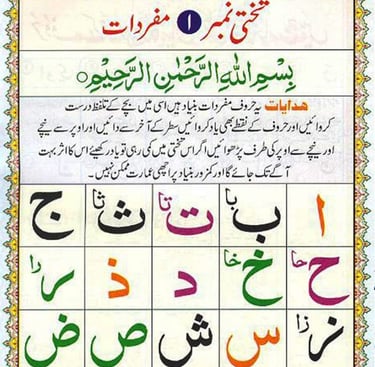 تختی نمبر ۱ مفردات
بِسْمِ اللهِ الرَّحْمٰنِ الرَّحِيْمِ
ھدایات یہ حروف مفردات بنیاد ہیں اسی میں بچے کے تلفظ درست
کروائیں اور حروف کے نقطے بھی یاد کروائیں سطر کے آخر سے دائیں اور اوپر سے نیچے
اور نیچے سے اوپر کی طرف پڑھوائیں اگر اس تختی میں کمی رہی تو یاد رکھیئے اس کا اثر بہت
آگے تک جائے گا اور کمزور بنیاد پر اچھی عمارت ممکن نہیں۔
ا ب با ت تا ث ثا ج
ح حا خ خا د ذ ر را
ز زا س ش ص ض